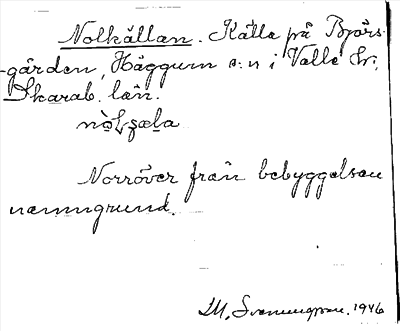 Nolkällan. Källa på Björs-
-gården, Häggum s:n i Valle hr;
Skarab. län.
Norröver från bebyggelsen
namngrund.
M. Svenungsson. 1946